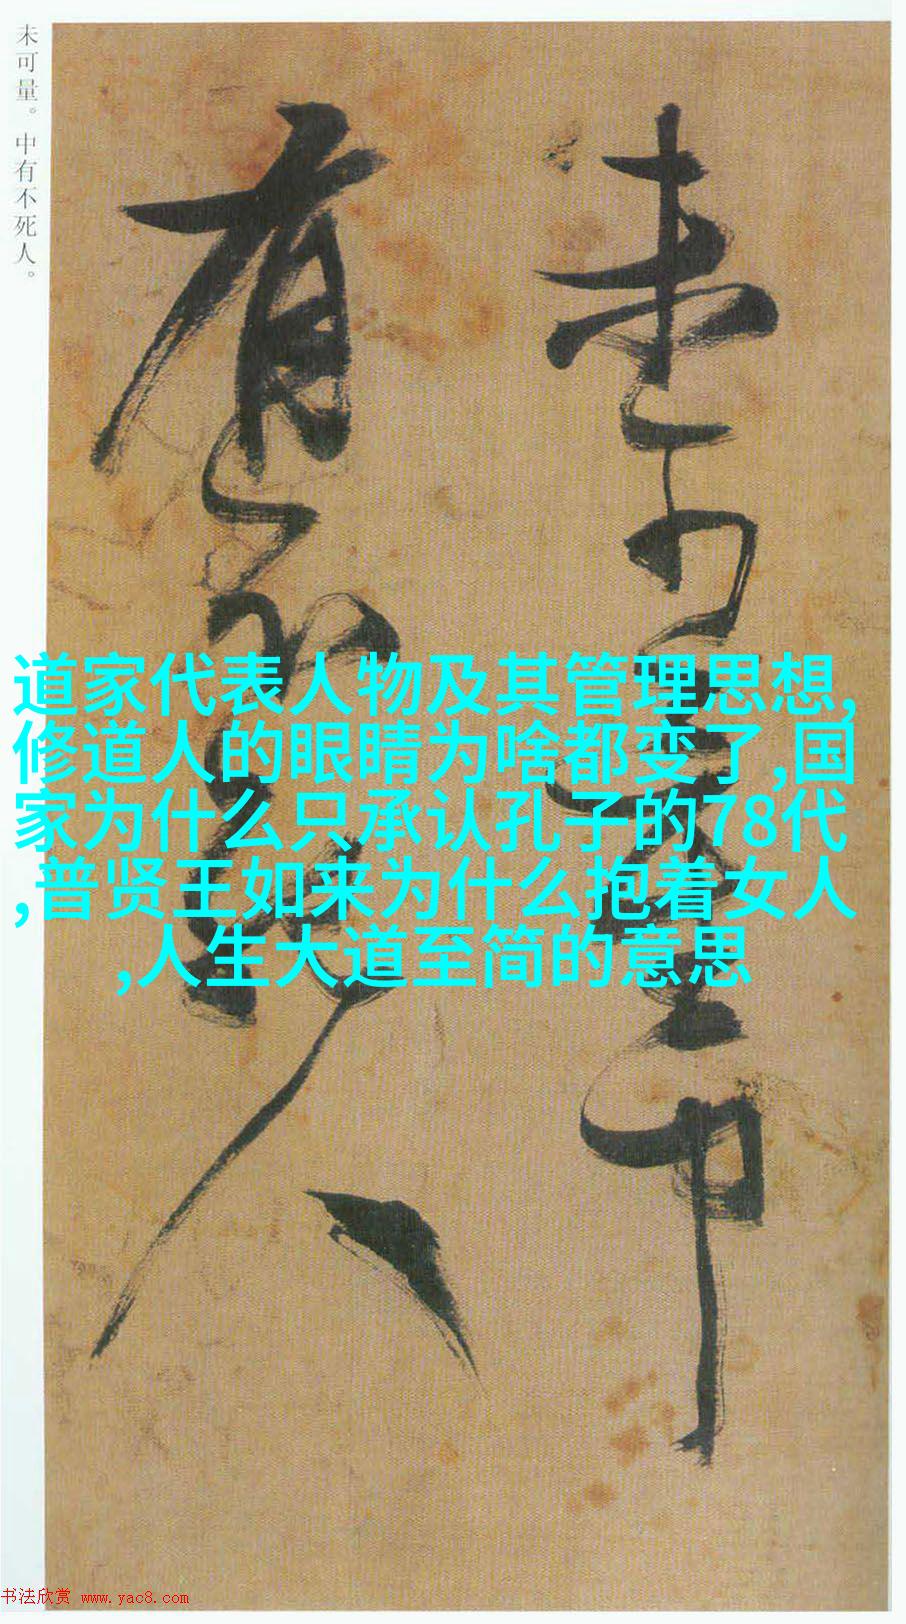 未可量。中有不死人。
未可量中
有不死人
道家代表人物及其管理思想,
修道人的眼睛为啥都变了,国
家为什么只承认孔子的78代
,普贤王如来为什么抱着女人
,人生大道至简的意思
书法欣赏 www.yac8.com